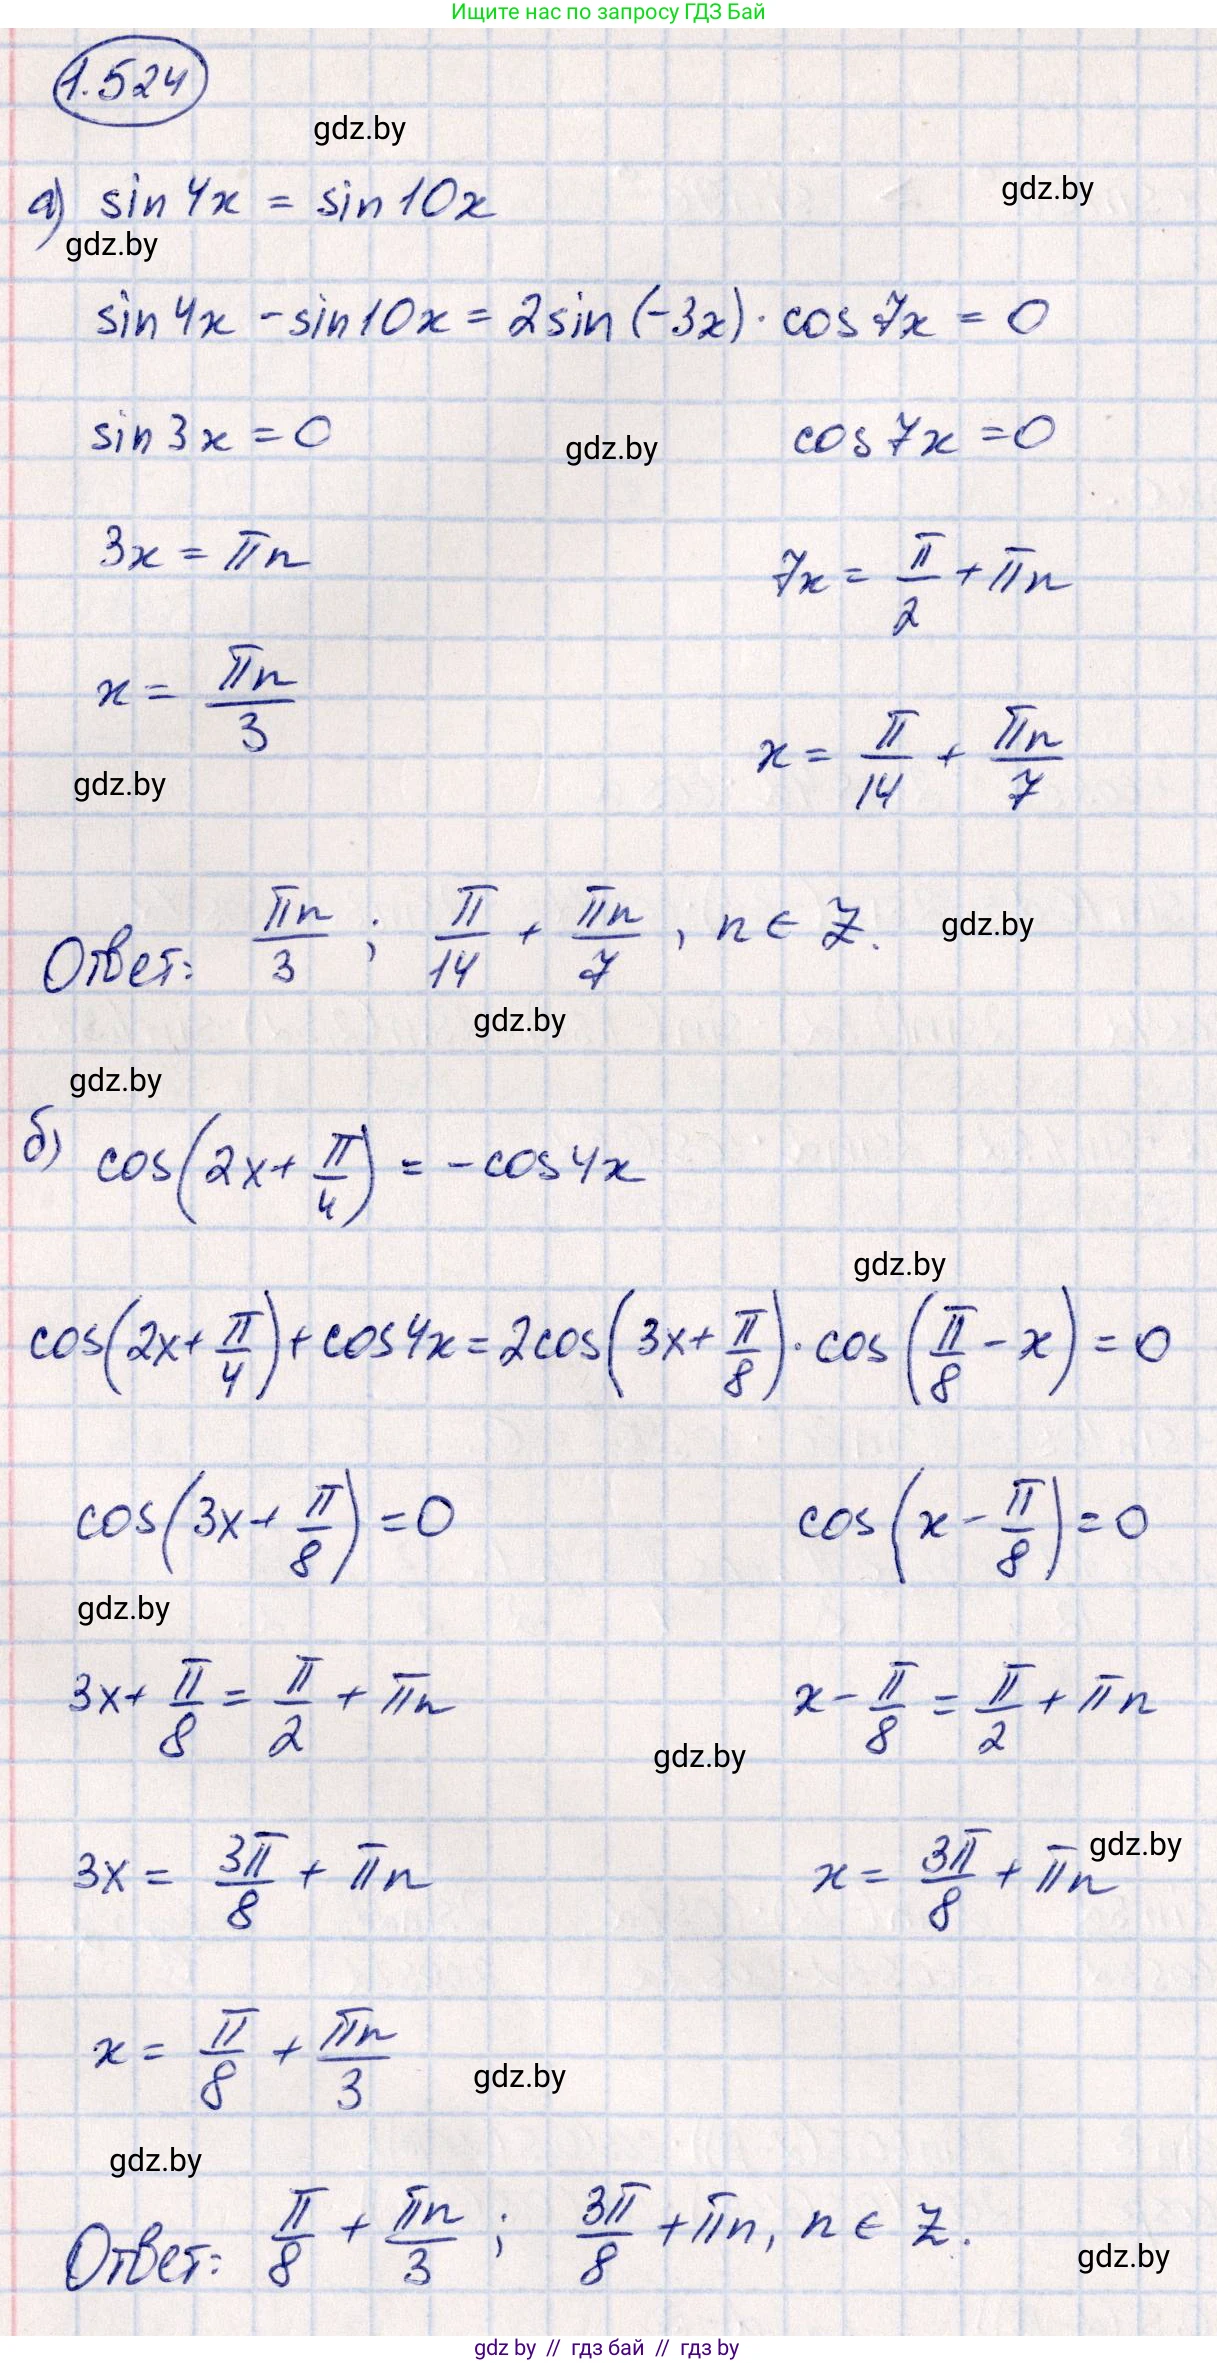 Ищите нас по запросу ГДЗ Бай
1.524
gdz.by
а) sin 4x = sin 10x
gdz.by
gdz.by
sin 4x - sin 10x = 2 sin (-3x) · cos 7x = 0
sin 3x = 0 cos 7x = 0
gdz.by
3x = πn 7x = π/2 + πn
x = πn/3 x = π/14 + πn/7
gdz.by
Ответ: πn/3 ; π/14 + πn/7 , n ∈ Z.
gdz.by
gdz.by
gdz.by
б) cos(2x + π/4) = - cos 4x
gdz.by
cos(2x + π/4) + cos 4x = 2 cos(3x + π/8) · cos(π/8 - x) = 0
cos(3x + π/8) = 0 cos(x - π/8) = 0
gdz.by
3x + π/8 = π/2 + πn x - π/8 = π/2 + πn
gdz.by
3x = 3π/8 + πn x = 3π/8 + πn
gdz.by
x = π/8 + πn/3
gdz.by
gdz.by
Ответ: π/8 + πn/3 ; 3π/8 + πn, n ∈ Z.
gdz.by
gdz by // гдз бай // гдз by